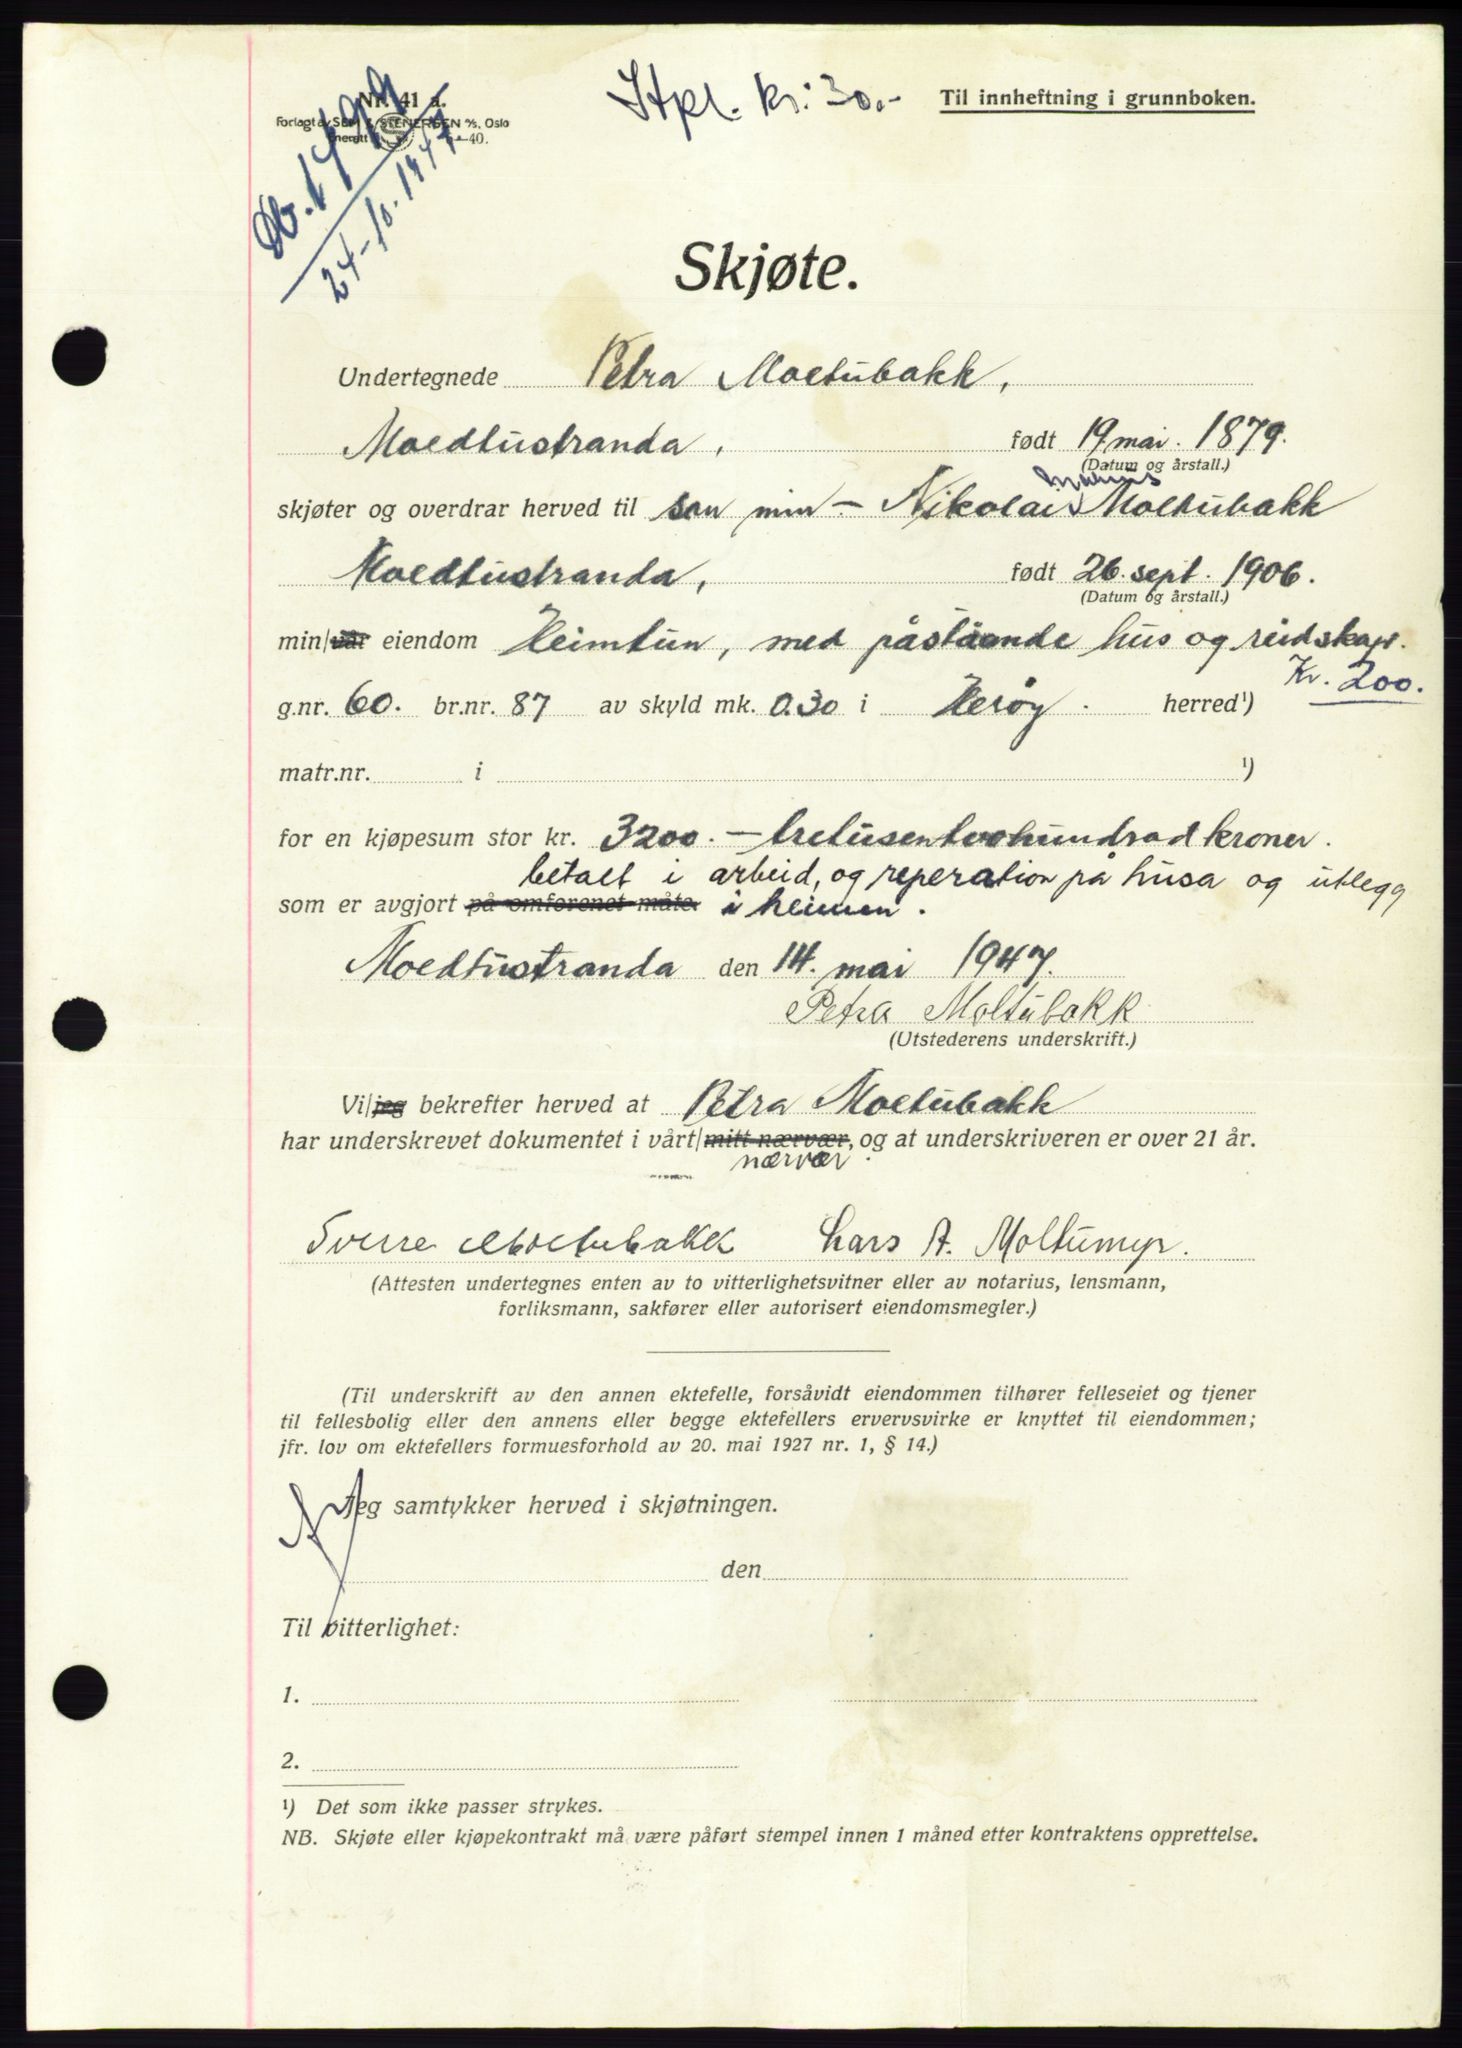 Nr. 41 a.
Stpl. kr: 30.-
Til innheftning i grunnboken.
Forlagt av SEM & STENERSEN A/S, Oslo
Enerett 6—40.
Db. 1499
24-10-1947
Skjøte.
Undertegnede Petra Moltubakk,
Moldtustranda, født 19. mai. 1879.
(Datum og årstall.)
skjøter og overdrar herved til søn min - Nikolai Moltubakk
Moldtustranda, født 26. sept. 1906.
(Datum og årstall.)
min/vår eiendom Heimtun, med påståande hus og reidskap.
Kr. 200.
g.nr. 60. br.nr. 87 av skyld mk. 0.30 i Herøy. herred¹)
matr.nr. i ¹)
for en kjøpesum stor kr. 3200. — tretusentvohundrad kroner.
betalt i arbeid, og reperation på husa og utlegg
som er avgjort på omforenet måte. i heimen.
Moldtustranda den 14. mai 1947.
Petra Moltubakk
(Utstederens underskrift.)
Vi/jeg bekrefter herved at Petra Moltubakk
har underskrevet dokumentet i vårt/mitt nærvær, og at underskriveren er over 21 år.
nærvær.
Sverre Moltubakk Lars A. Moltumyr.
(Attesten undertegnes enten av to vitterlighetsvitner eller av notarius, lensmann,
forliksmann, sakfører eller autorisert eiendomsmegler.)
(Til underskrift av den annen ektefelle, forsåvidt eiendommen tilhører felleseiet og tjener
til fellesbolig eller den annens eller begge ektefellers ervervsvirke er knyttet til eiendommen;
jfr. lov om ektefellers formuesforhold av 20. mai 1927 nr. 1, § 14.)
Jeg samtykker herved i skjøtningen.
den
Til vitterlighet:
1.
2.
¹) Det som ikke passer strykes.
NB. Skjøte eller kjøpekontrakt må være påført stempel innen 1 måned etter kontraktens opprettelse.